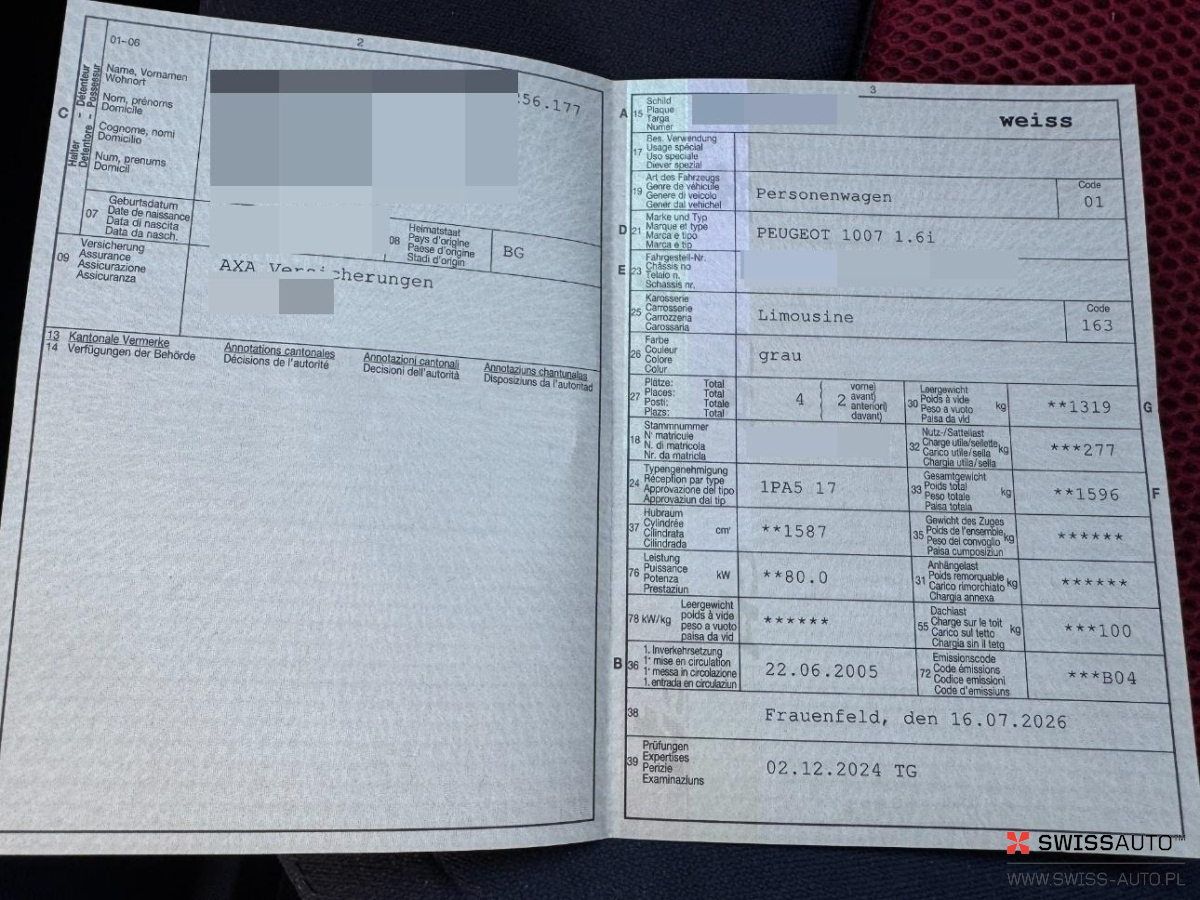 2
01-06
Name, Vornamen
Wohnort
Nom, prénoms
Domicile
Cognome, nomi
Domicilio
Num, prenums
Domicil
C
Halter - Détenteur
Detentore - Possessur
256.177
07
Geburtsdatum
Date de naissance
Data di nascita
Data da nasch.
08
Heimatstaat
Pays d'origine
Paese d'origine
Stadi d'origin
BG
09
Versicherung
Assurance
Assicurazione
Assicuranza
AXA Versicherungen
13 Kantonale Vermerke
14 Verfügungen der Behörde
Annotations cantonales
Décisions de l'autorité
Annotazioni cantonali
Decisioni dell'autorità
Annotaziuns chantunalas
Disposiziuns da l'autoritad
3
A 15
Schild
Plaque
Targa
Numer
weiss
17
Bes. Verwendung
Usage spécial
Uso speciale
Diever spezial
19
Art des Fahrzeugs
Genre de véhicule
Genere di veicolo
Gener dal vehichel
Personenwagen
Code
01
D 21
Marke und Typ
Marque et type
Marca e tipo
Marca e tip
PEUGEOT 1007 1.6i
E 23
Fahrgestell-Nr.
Châssis no
Telaio n.
Schassis nr.
25
Karosserie
Carrosserie
Carrozzeria
Carossaria
Limousine
Code
163
26
Farbe
Couleur
Colore
Colur
grau
27
Plätze: Total
Places: Total
Posti: Totale
Plazs: Total
4
2
vorne)
avant)
anteriori)
davant)
30
Leergewicht
Poids à vide
Peso a vuoto
Paisa da vid
kg
**1319
G
18
Stammnummer
N° matricule
N. di matricola
Nr. da matricla
32
Nutz-/Sattellast
Charge utile/sellette
Carico utile/sella
Chargia utila/sella
kg
***277
24
Typengenehmigung
Réception par type
Approvazione del tipo
Approvaziun dal tip
1PA5 17
33
Gesamtgewicht
Poids total
Peso totale
Paisa totala
kg
**1596
F
37
Hubraum
Cylindrée
Cilindrata
Cilindrada
cm³
**1587
35
Gewicht des Zuges
Poids de l'ensemble
Peso del convoglio
Paisa cumposiziun
kg
******
76
Leistung
Puissance
Potenza
Prestaziun
kW
**80.0
31
Anhängelast
Poids remorquable
Carico rimorchiato
Chargia annexa
kg
******
78 kW/kg
Leergewicht
poids à vide
peso a vuoto
paisa da vid
******
55
Dachlast
Charge sur le toit
Carico sul tetto
Chargia sin il tetg
kg
***100
B 36
1. Inverkehrsetzung
1re mise en circulation
1a messa in circolazione
1. entrada en circulaziun
22.06.2005
72
Emissionscode
Code émissions
Codice emissioni
Code d'emissiuns
***B04
38
Frauenfeld, den 16.07.2026
39
Prüfungen
Expertises
Perizie
Examinaziuns
02.12.2024 TG
SWISSAUTO™
WWW.SWISS-AUTO.PL